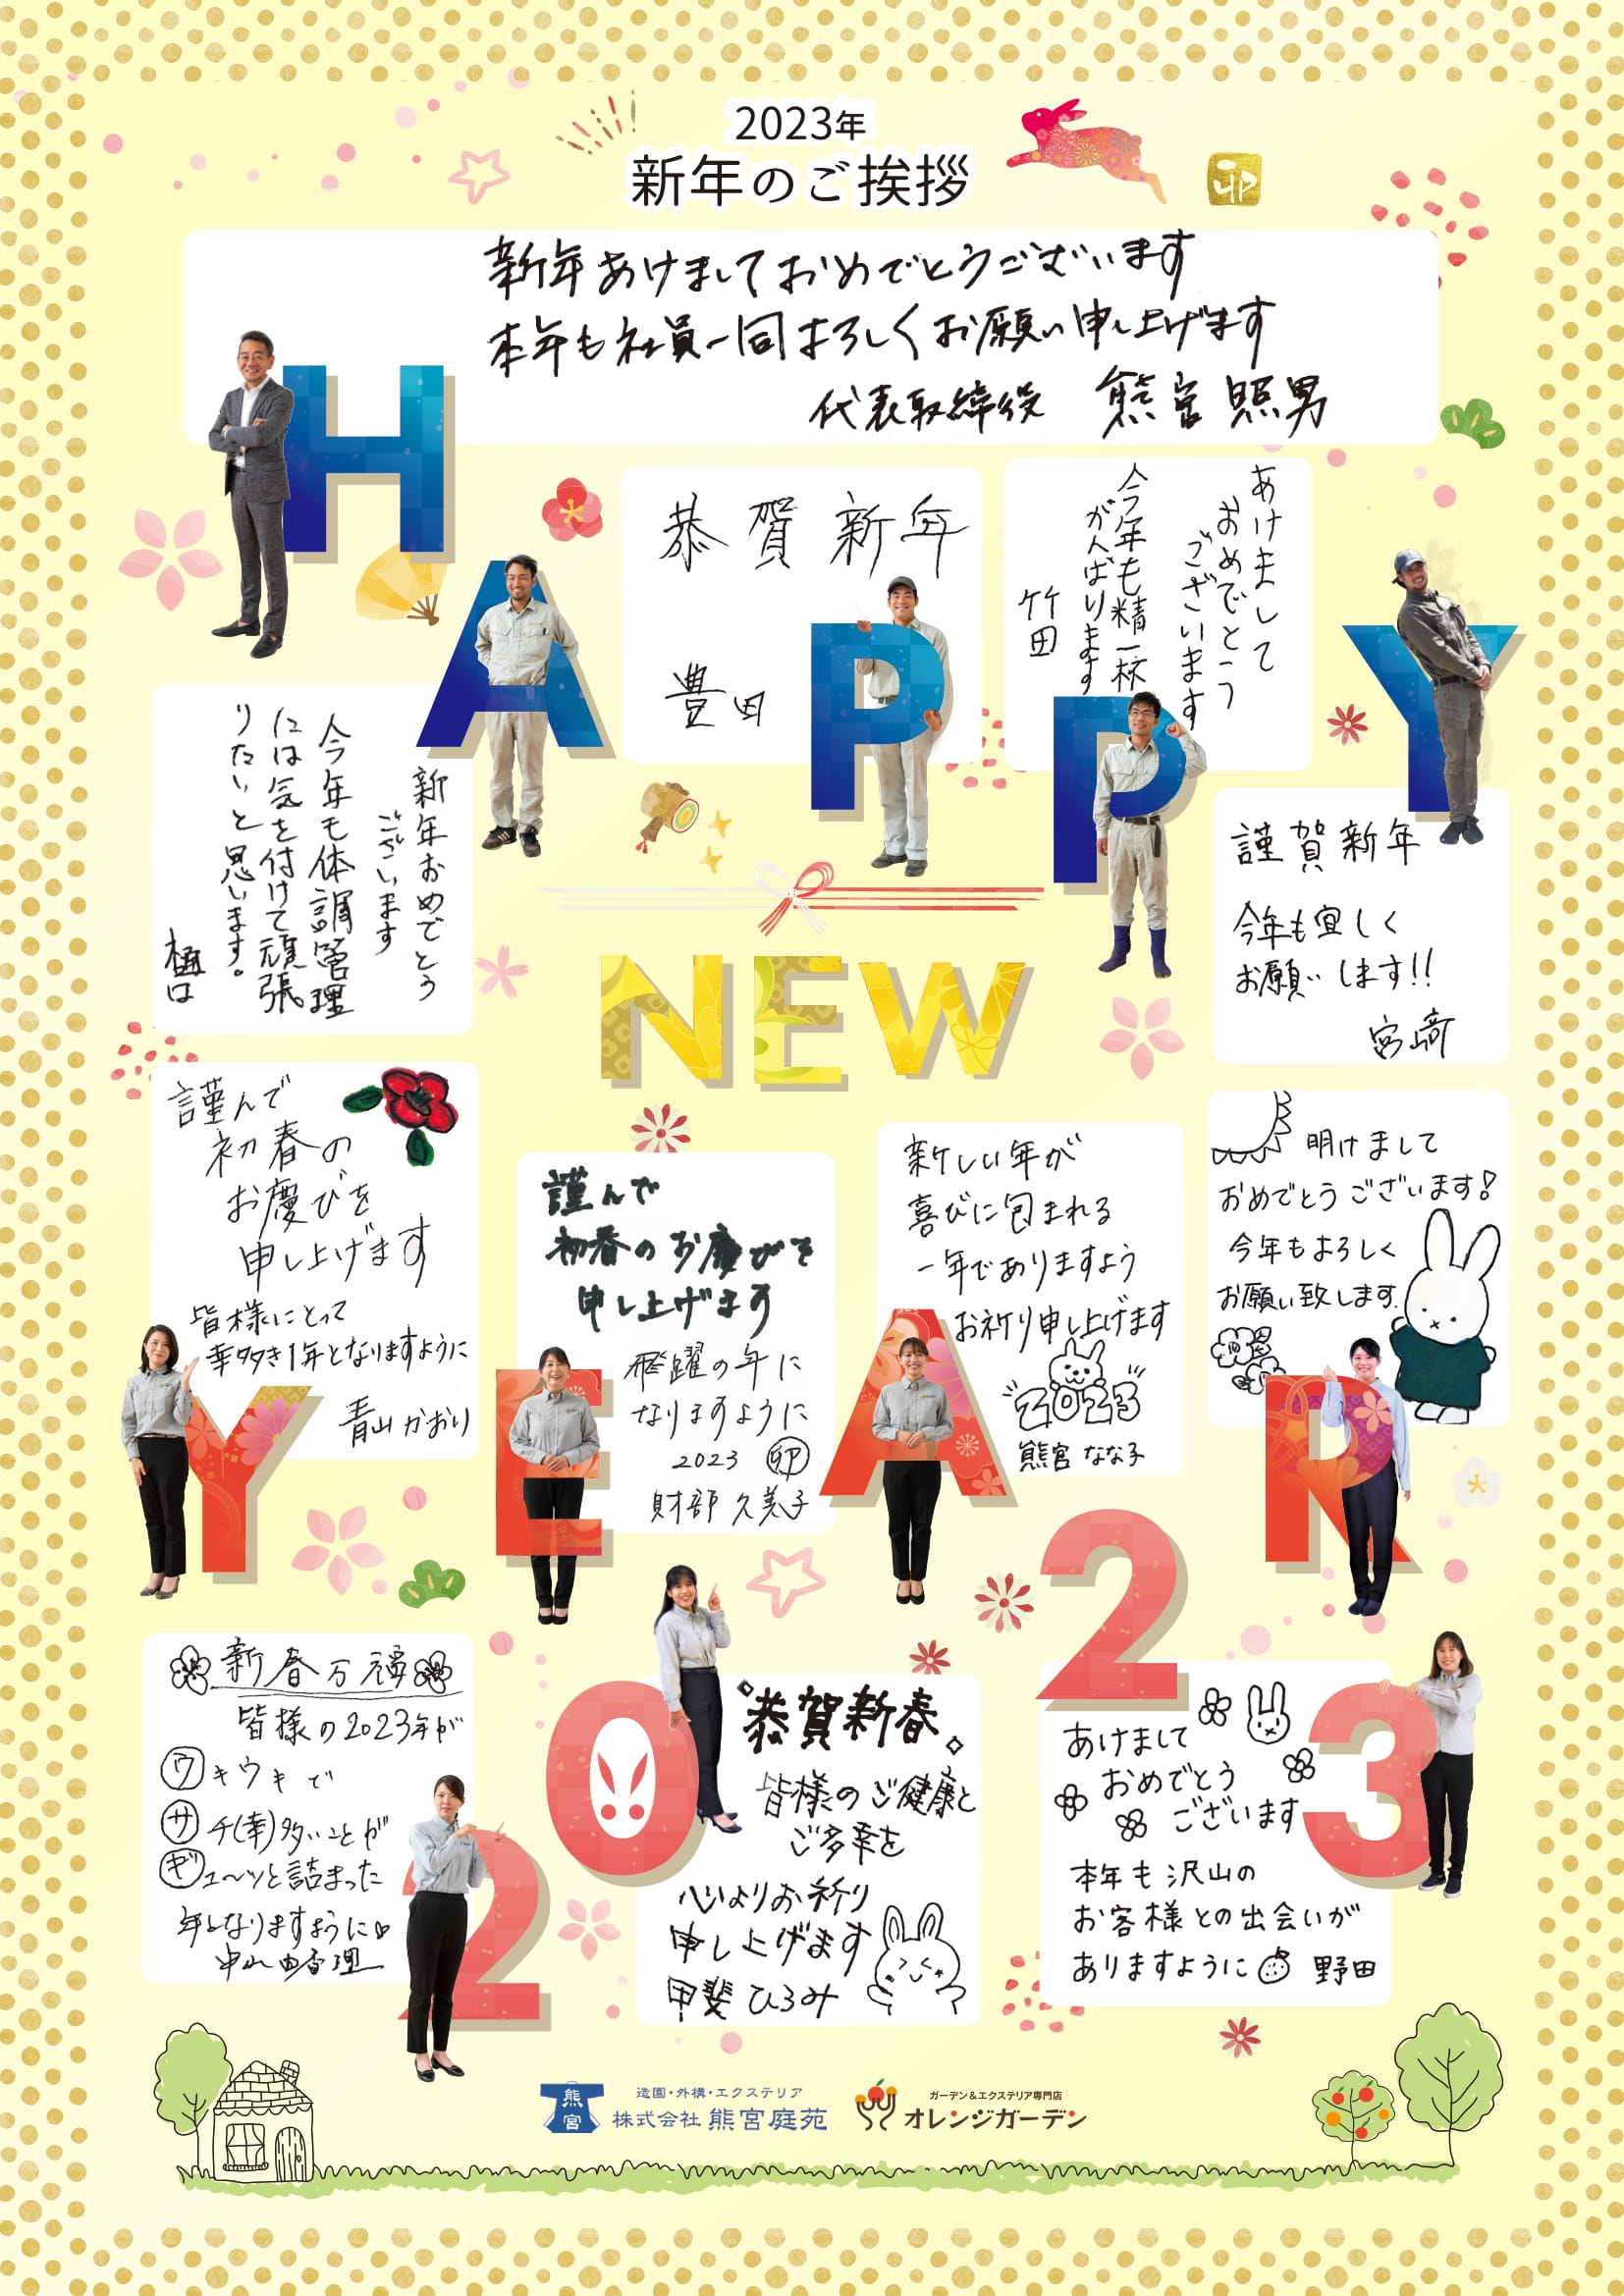 2023年
新年のご挨拶
卯
新年あけましておめでとうございます
本年も社員一同よろしくお願い申し上げます
代表取締役 熊宮照男
HAPPY
恭賀新年
豊田
あけまして
おめでとう
ございます
今年も精一杯
がんばります
竹田
新年おめでとう
ございます
今年も体調管理
には気を付けて頑張
りたいと思います。
樋口
謹賀新年
今年も宜しく
お願いします!!
宮﨑
NEW
謹んで
初春の
お慶びを
申し上げます
皆様にとって
幸多き1年となりますように
青山かおり
謹んで
初春のお慶びを
申し上げます
飛躍の年に
なりますように
2023 卯
財部 久美子
新しい年が
喜びに包まれる
一年でありますよう
お祈り申し上げます
2023
熊宮 なな子
明けまして
おめでとうございます!
今年もよろしく
お願い致します.
YEAR
2023
新春万福
皆様の2023年が
ウキウキで
サチ(幸)多いことが
ギュ〜ッと詰まった
年になりますように
中山 由香理
恭賀新春
皆様のご健康と
ご多幸を
心よりお祈り
申し上げます
甲斐ひろみ
あけまして
おめでとう
ございます
本年も沢山の
お客様との出会いが
ありますように 野田
熊宮
造園・外構・エクステリア
株式会社 熊宮庭苑
ガーデン&エクステリア専門店
オレンジガーデン